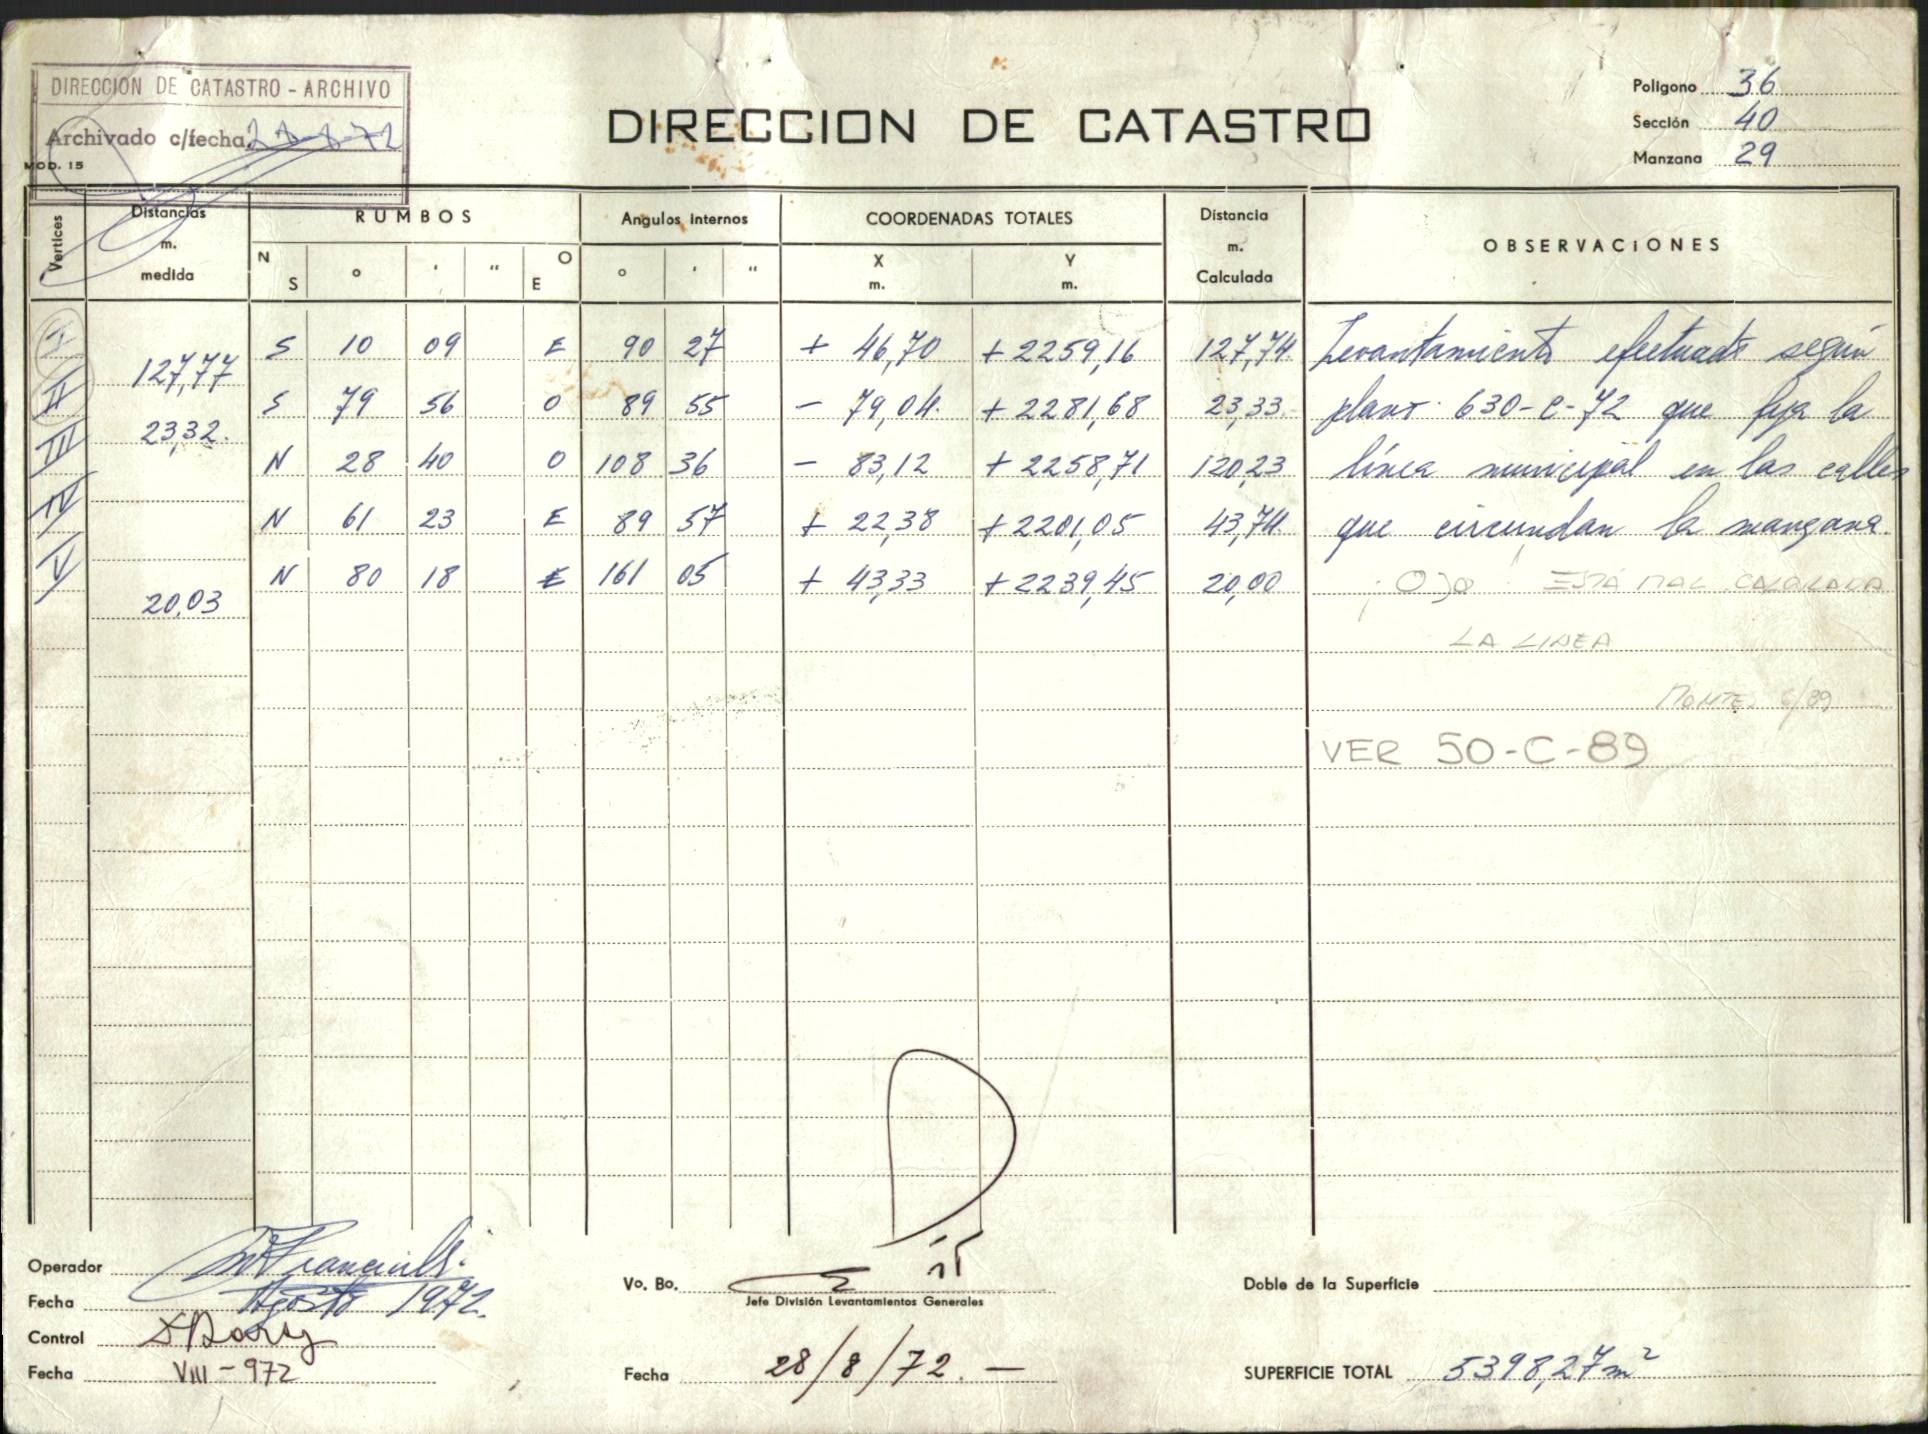 DIRECCION DE CATASTRO - ARCHIVO
Archivado c/fecha
MOD. 15
DIRECCION DE CATASTRO
Polígono 36
Sección 40
Manzana 29
Vertices
Distancias m. medida
RUMBOS
N S ° ' " O E
Angulos internos
° ' "
COORDENADAS TOTALES
X m. Y m.
Distancia m. Calculada
OBSERVACIONES
I S 10 09 E 90 27 + 46,70 + 2259,16 127,74 Levantamiento efectuado según
127,77
II S 79 56 O 89 55 - 79,04 + 2281,68 23,33 plano 630-C-72 que fija la
23,32
III N 28 40 O 108 36 - 83,12 + 2258,71 120,23 línea municipal en las calles
IV N 61 23 E 89 57 + 22,38 + 2201,05 43,74 que circundan la manzana.
V N 80 18 E 161 05 + 43,33 + 2239,45 20,00 ¡Ojo ESTÁ MAL CALCULADA
20,03
LA LINEA
MONTE. 6/89
VER 50-C-89
Operador
Fecha Agosto 1972
Control
Fecha VIII-972
Vo. Bo.
Jefe División Levantamientos Generales
Fecha 28/8/72. —
Doble de la Superficie
SUPERFICIE TOTAL 5398,27 m²